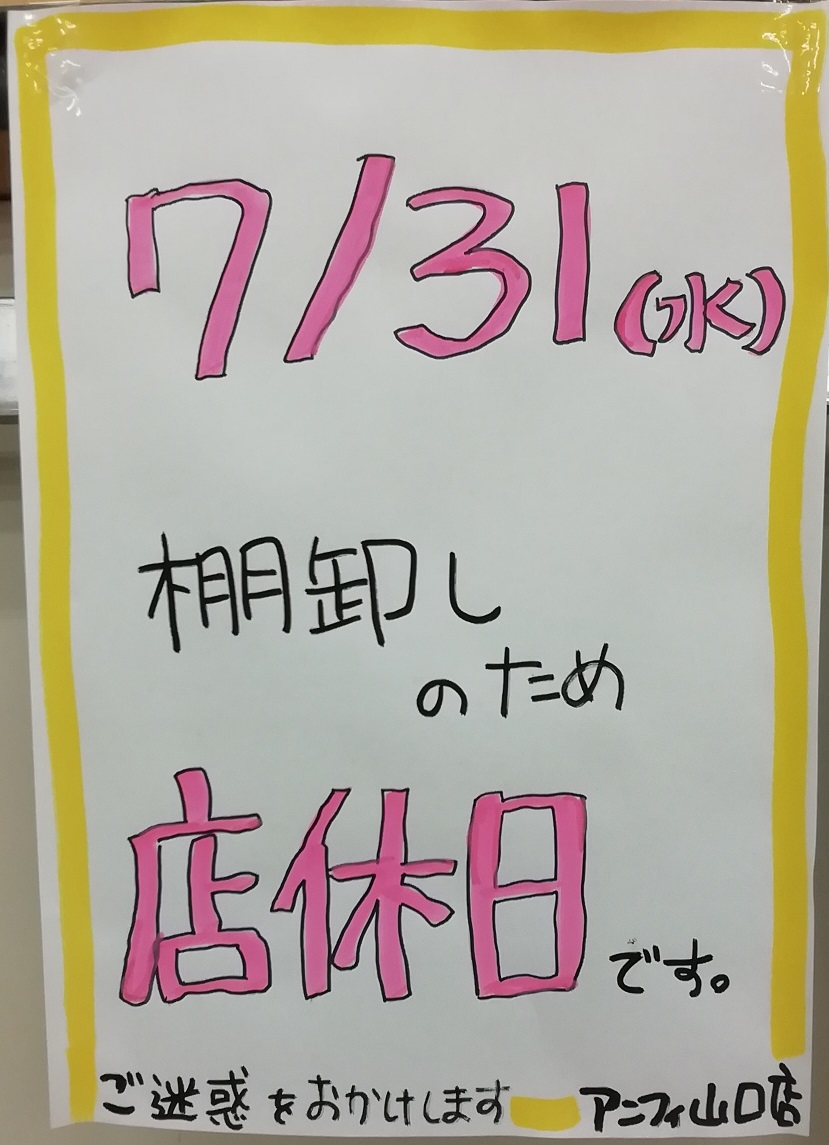 7/31(水)
棚卸し
のため
店休日です。
ご迷惑をおかけします アンフィ山口店